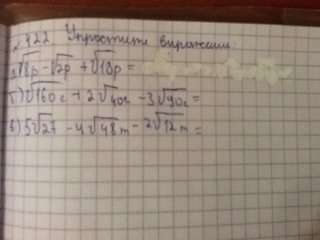 2.422 Упростите выражения:
а)√8p - √2p + √18p =
б)√160c + 2√40c - 3√90c =
в) 5√27 - 4√48m - 2√12m =